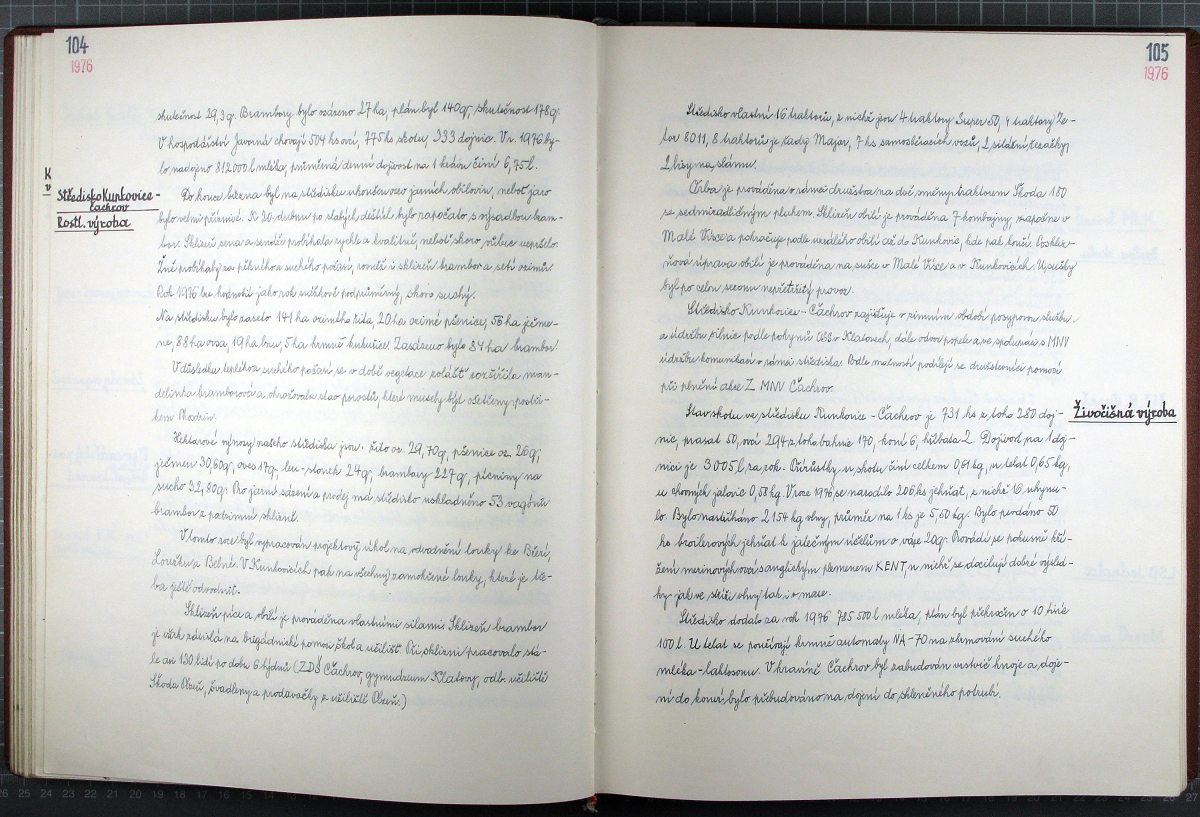 104
1976
skutečnost 29,3 q. Brambory bylo osázeno 27 ha, plán byl 140 q, skutečnost 178 q.
V hospodářství Javorná chovají 504 ks ovcí, 775 ks skotu, 333 dojnic. V r. 1976 by-
lo nadojeno 812000 l mléka, průměrná denní dojivost na 1 kedin činí 6,75 l.
K
v
Středisko Kunkovice -
Čachrov
Rostl. výroba
Do konce března byl na středisku ukončen osev jarních obilovin, neboť jaro
bylo velmi příznivé. K 20. dubnu po slabých deštích bylo započato s výsadbou bram-
bor. Sklizeň sena a senáží probíhala rychle a kvalitně, neboť skoro vůbec nepršelo.
Žně probíhaly za několika suchého počasí, rovněž i sklizeň brambor a setí ozimů.
Rok 1976 lze hodnotit jako rok srážkově podprůměrný, skoro suchý.
Na středisku bylo zaseto 141 ha ozimého žita, 20 ha ozimé pšenice, 56 ha ječme-
ne, 88 ha ovsa, 19 ha lnu, 5 ha krmné kukuřice. Zasázeno bylo 84 ha brambor
V důsledku teplého a suchého počasí se v době vegetace zvlášť rozšířila man-
delinka bramborová a ohrožovala stav porostů, které musely být ošetřeny postři-
kem
Hektarové výnosy našeho střediska jsou: žito oz. 29,70 q, pšenice oz. 26 q,
ječmen 30,60 q, oves 17 q, len-stonek 24 q, brambory 227 q, pícniny na
sucho 32,80 q. Pro jarní sázení a prodej má středisko uskladněno 53 vagónů
brambor z podzimní sklizně.
V tomto roce byl vypracován projektový úkol na odvodnění louky ke Březí,
Loreťku z Belné. V Kunkovicích pak na všechny zamokřené louky, které je tře-
ba ještě odvodnit.
Sklizeň píce a obilí je prováděna vlastními silami. Sklizeň brambor
je však závislá na brigádnické pomoci škol a učilišť. Při sklizni pracovalo stá-
le asi 130 lidí po dobu 6 týdnů (ZDŠ Čachrov, gymnázium Klatovy, odb. učiliště
Škoda Plzeň, švadleny a prodavačky z učiliště Plzeň.)
105
1976
Středisko vlastní 16 traktorů, z nichž jsou 4 traktory Super 50, 4 traktory Ze-
tor 8011, 8 traktorů je řady Major, 7 ks samosběracích vozů, 2 silážní řezačky,
2 lisy na slámu.
Orba je prováděna v rámci družstva na dvě směny traktorem Škoda 180
se sedmiradličným pluhem. Sklizeň obilí je prováděna 7 kombajny, započne v
Malé Vísce a pokračuje podle uzrálého obilí až do Kunkovic, kde pak končí. Posklizň-
ňová úprava obilí je prováděna na sušce v Malé Vísce a v Kunkovicích. U sušky
byl po celou sezonu nepřetržitý provoz.
Středisko Kunkovice - Čachrov zajišťuje v zimním období posypovou službu
a údržbu silnic podle pokynů OSS v Klatovech, dále odvoz popele a ve spolupráci s MNV
údržbu komunikací v rámci střediska. Podle možností podílejí se družstevníci pomocí
při plnění akce Z MNV Čachrov.
Živočišná výroba
Stav skotu ve středisku Kunkovice - Čachrov je 731 ks z toho 280 doj-
nic, prasat 50, ovcí 294 z toho bahnic 170, koní 6, hříbata 2. Dojivost na 1 doj-
nici je 3005 l za rok. Přírůstky u skotu činí celkem 0,61 kg, u telat 0,65 kg,
u chovných jalovic 0,58 kg. V roce 1976 se narodilo 206 ks jehňat, z nichž 16 uhynu-
lo. Bylo nastříháno 2154 kg vlny, průměr na 1 ks je 5,60 kg. Bylo prodáno 50
ks broilerových jehňat k jatečným účelům o váze 20 q. Provádí se pokusné kří-
žení merinových ovcí s anglickým plemenem KENT, u nichž se docilují dobré výsled-
ky jak ve stříži vlny tak i v mase.
Středisko dodalo za rok 1976 785 500 l mléka, plán byl překročen o 10 tisíc
100 l. U telat se používají krmné automaty NA-70 na zkrmování suchého
mléka - laktosanu. V kravíně Čachrov byl zabudován vrstvič hnoje a doje-
ní do konví bylo přebudováno na dojení do skleněného potrubí.